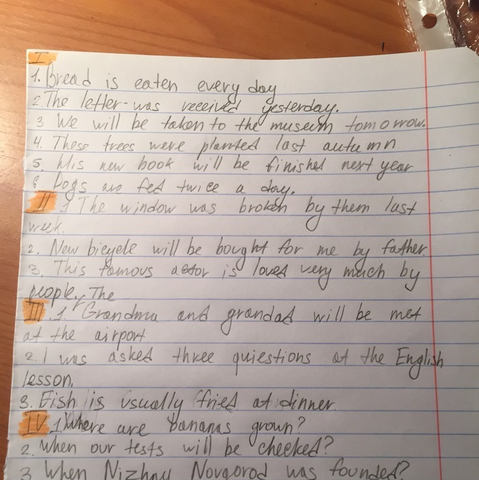 I
1. Bread is eaten every day
2 The letter was received yesterday.
3 We will be taken to the museum tomorrow.
4. These trees were planted last autumn
5. His new book will be finished next year
6 Dogs are fed twice a day.
II 1 The window was broken by them last
week.
2. New bicycle will be bought for me by father
3. This famous actor is loved very much by
people. The
III. 1 Grandma and grandad will be met
at the airport
2. I was asked three quiestions at the English
lesson.
3. Fish is usually fried at dinner.
IV 1 Where are bananas grown?
2. When our tests will be checked?
3 When Nizhny Novgorod was founded?